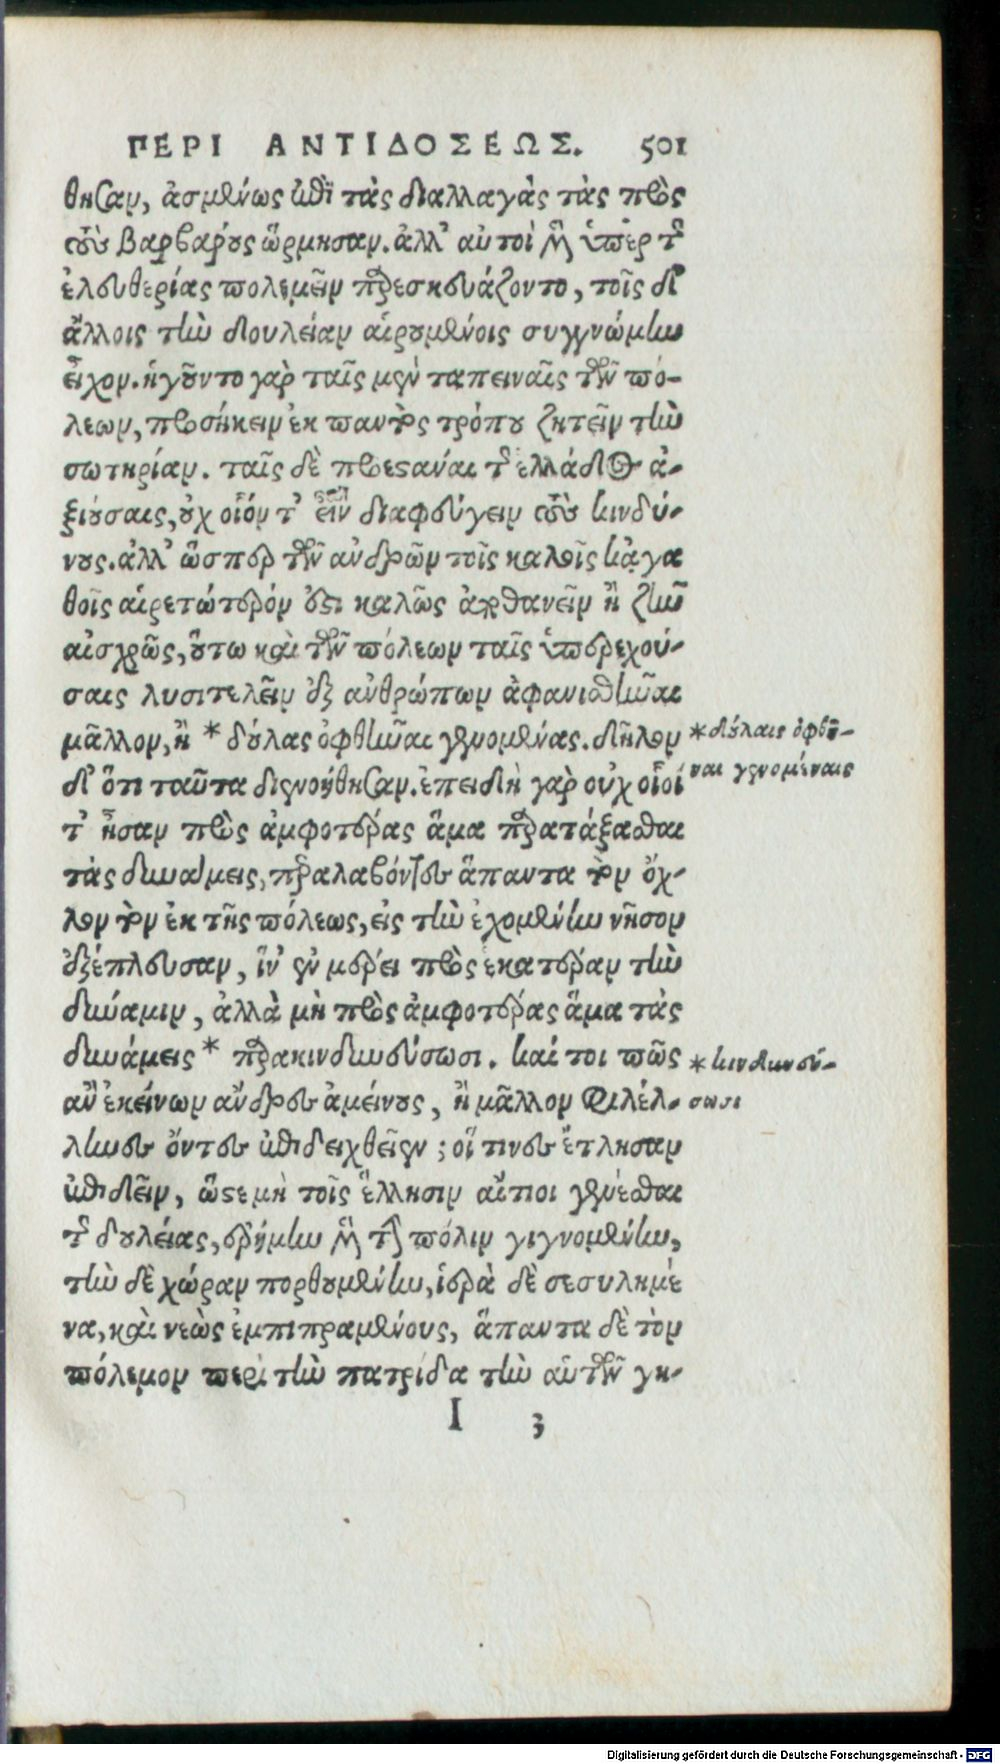 ΠΕΡΙ ΑΝΤΙΔΟΣΕΩΣ. 501
θησαν, ἀσμένως ἐπὶ τὰς διαλλαγὰς τὰς πρὸς
τοὺς βαρβάρους ὥρμησαν. ἀλλ' αὐτοὶ μὲν ὑπὲρ τῆς
ἐλευθερίας πολεμεῖν παρεσκευάζοντο, τοῖς δ'
ἄλλοις τὴν δουλείαν αἱρουμένοις συγγνώμην
εἶχον. ἡγοῦντο γὰρ ταῖς μὲν ταπειναῖς τῶν πό-
λεων, προσήκειν ἐκ παντὸς τρόπου ζητεῖν τὴν
σωτηρίαν. ταῖς δὲ προεστάναι τῆς ἑλλάδος ἀ-
ξιούσαις, οὐχ οἷόν τ' εἶναι διαφεύγειν τοὺς κινδύ-
νους. ἀλλ' ὥσπερ τῶν ἀνδρῶν τοῖς καλοῖς κἀγα
θοῖς αἱρετώτερόν ἐστι καλῶς ἀποθανεῖν ἢ ζῆν
αἰσχρῶς, οὕτω καὶ τῶν πόλεων ταῖς ὑπερεχού-
σαις λυσιτελεῖν ἐξ ἀνθρώπων ἀφανισθῆναι
μᾶλλον, ἢ * δούλας ὀφθῆναι γενομένας. δῆλον
δ' ὅτι ταῦτα διενοήθησαν. ἐπειδὴ γὰρ οὐχ οἷοί
τ' ἦσαν πρὸς ἀμφοτέρας ἅμα παρατάξασθαι
τὰς δυνάμεις, παραλαβόντες ἅπαντα τὸν ὄχ-
λον τὸν ἐκ τῆς πόλεως, εἰς τὴν ἐχομένην νῆσον
ἐξέπλευσαν, ἵν' ἐν μέρει πρὸς ἑκατέραν τὴν
δύναμιν, ἀλλὰ μὴ πρὸς ἀμφοτέρας ἅμα τὰς
δυνάμεις * παρακινδυνεύσωσι. καί τοι πῶς
ἂν ἐκείνων ἄνδρες ἀμείνους, ἢ μᾶλλον φιλέλ-
ληνες ὄντες ἐπιδειχθεῖεν; οἵ τινες ἔτλησαν
ἐπιδεῖν, ὥστε μὴ τοῖς ἕλλησιν αἴτιοι γενέσθαι
τῆς δουλείας, ἐρήμην μὲν τὴν πόλιν γιγνομένην,
τὴν δὲ χώραν πορθουμένην, ἱερὰ δὲ σεσυλημέ
να, καὶ νεὼς ἐμπιπραμένους, ἅπαντα δὲ τὸν
πόλεμον περὶ τὴν πατρίδα τὴν αὑτῶν γι-
I 3
* δούλαις ὀφθῆ-
ναι γενομέναις
* κινδυνεύ-
σωσι
Digitalisierung gefördert durch die Deutsche Forschungsgemeinschaft - DFG